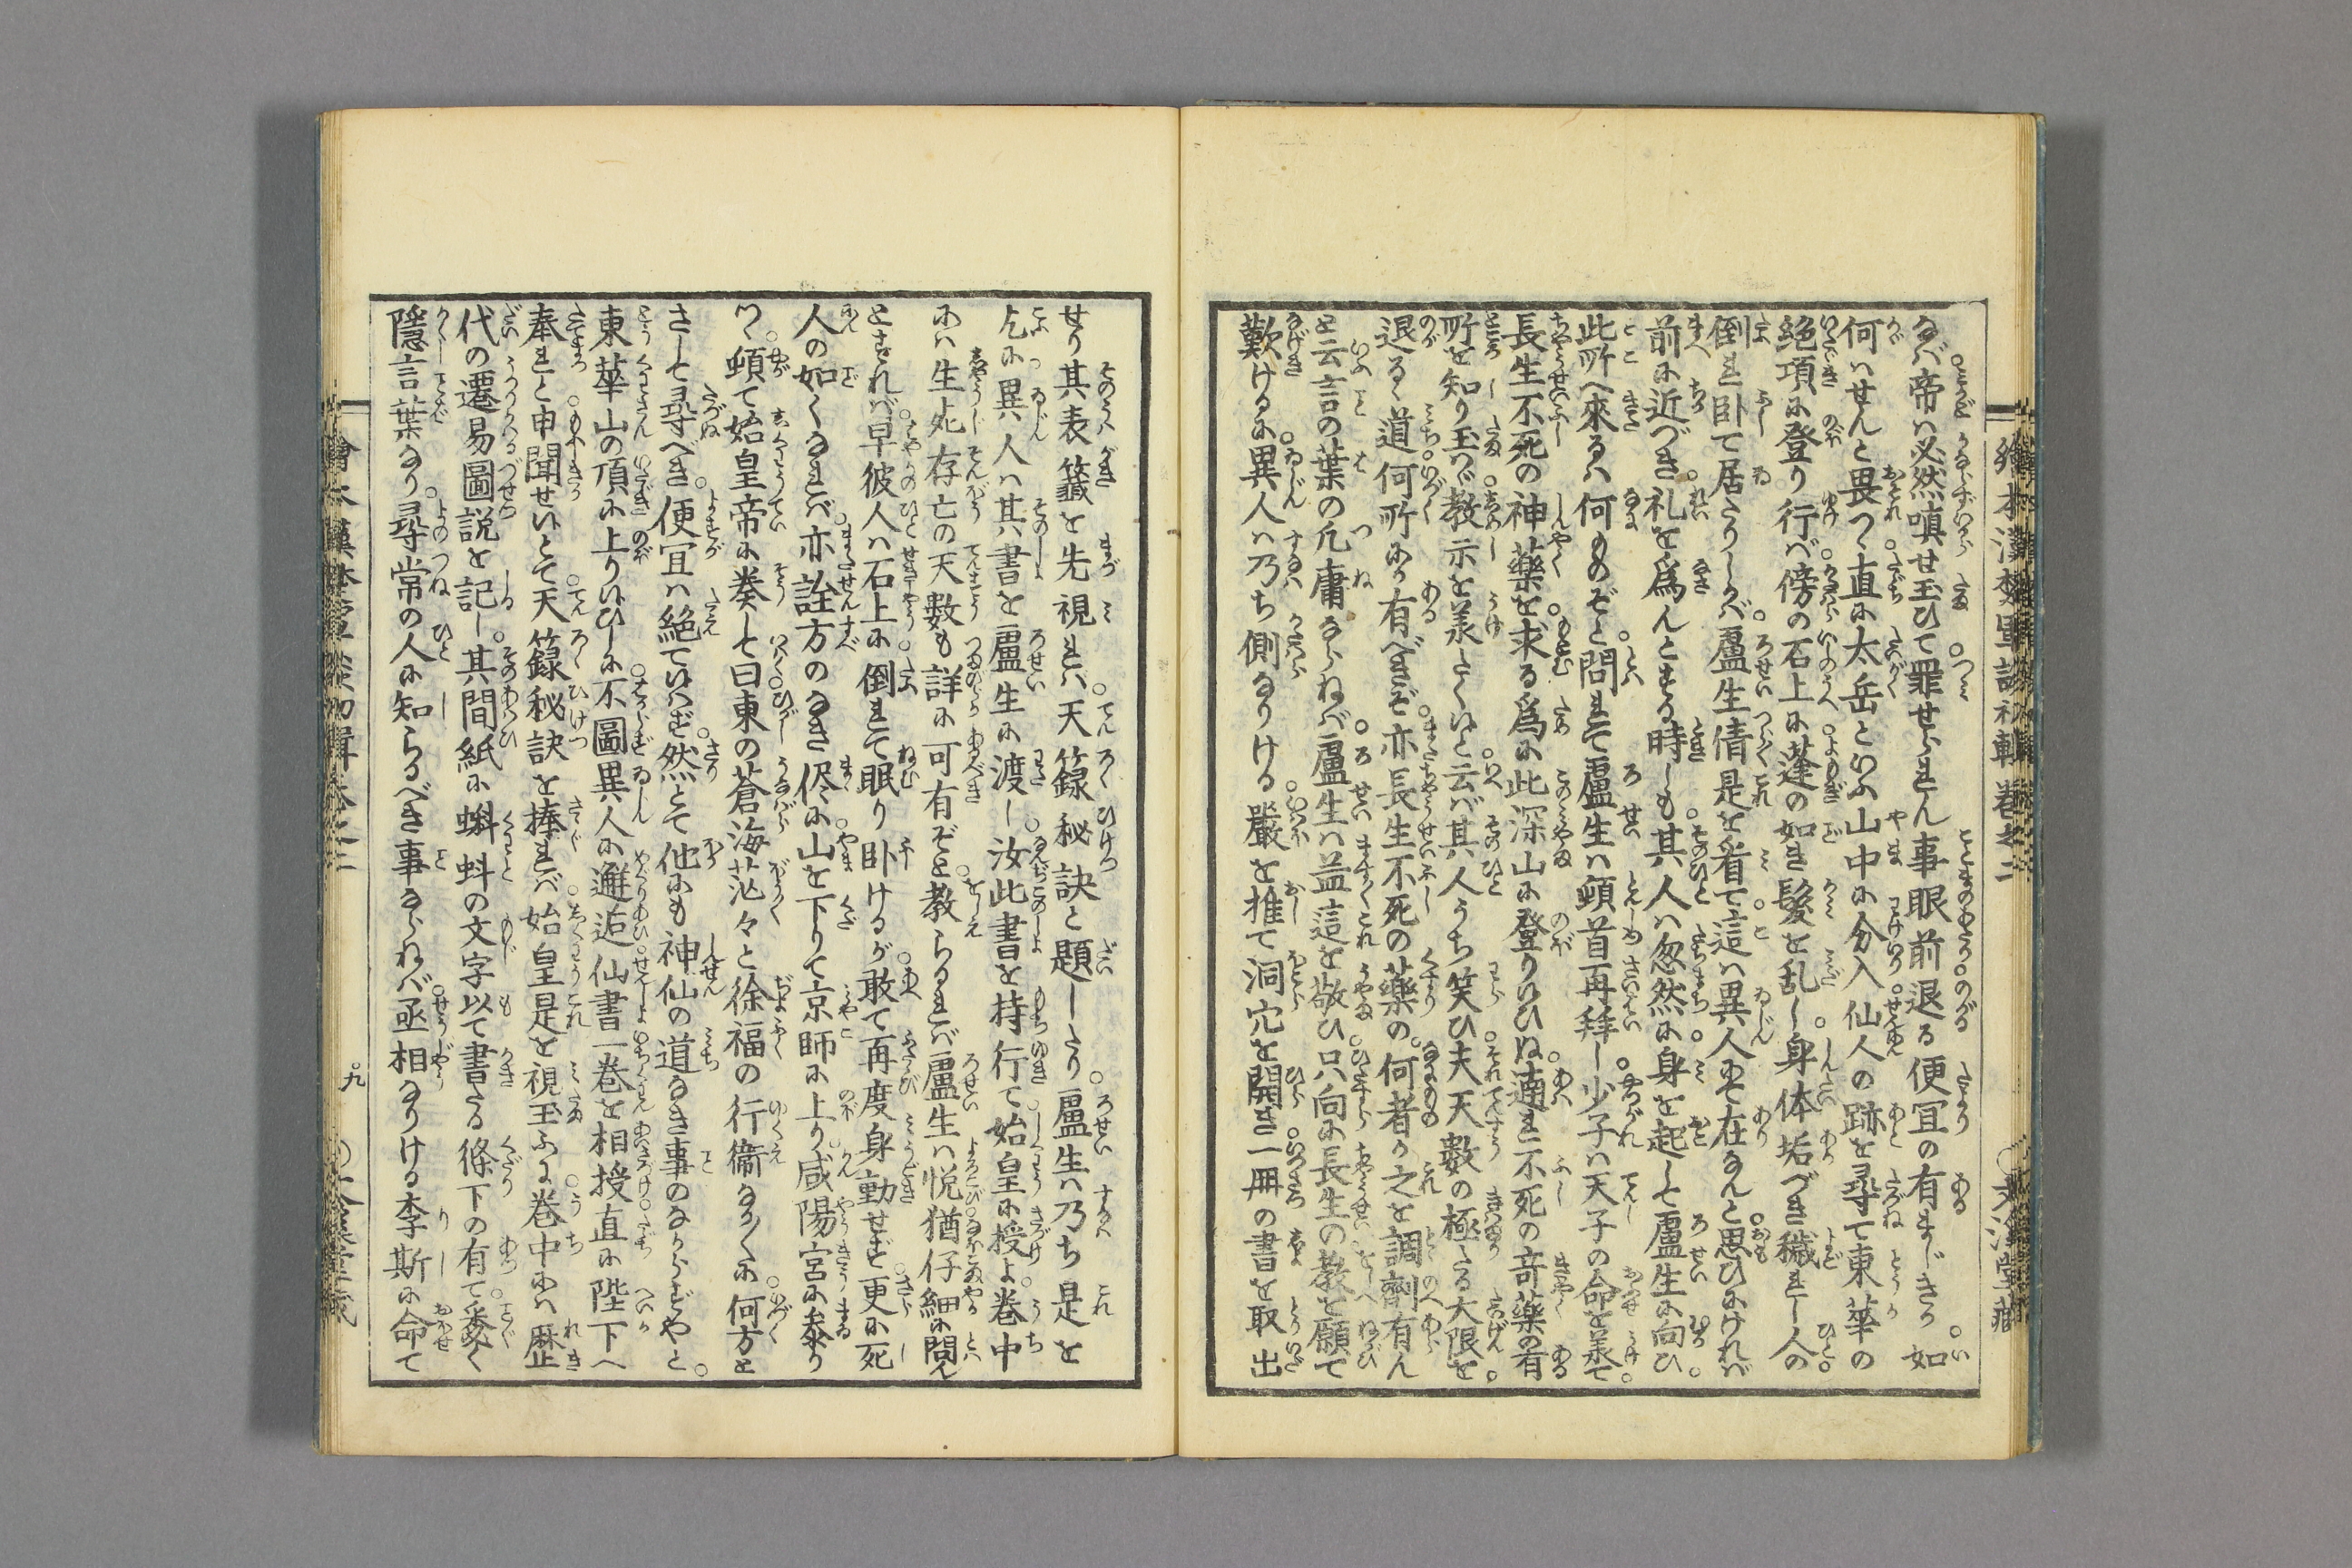 なば帝ハ必然嗔せ玉ひて罪せられん事眼前退る便宜の有まじきか如
何ハせんと畏つゝ直に太岳といふ山中に分入仙人の跡を尋て東華の
絶頂に登り行バ傍の石上に蓬の如き髪を乱し身体垢づき穢れし人の
倒れ卧て居たりしかバ盧生倩是を看て這ハ異人にて在なんと思ひけれバ
前に近づき礼を為んとする時しも其人ハ忽然に身を起して盧生に向ひ
此所へ來るハ何ものぞと問れて盧生ハ頓首再拜し少子ハ天子の命を羕て
長生不死の神藥を求る為に此深山に登りひぬ適れ不死の竒藥の有
所を知り玉ハヾ教示を羕たくいと云バ其人うち笑ひ夫天數の極たる大限を
退るゝ道何所にか有べきぞ亦長生不死の藥の何者か之を調劑有ん
と云言の葉の凡庸ならねバ盧生ハ益這を敬ひ只向に長生の教を願て
歎けるに異人ハ乃ち側なりける巖を推て洞穴を開き一冊の書を取出
せり其表籤を先視れハ天籙秘訣と題したり盧生ハ乃ち是を
乞に異人ハ其書を盧生に渡し汝此書を持行て始皇に授よ巻中
にハ生死存亡の天數も詳に可有ぞと教らるれバ盧生ハ悦猶仔細に問ん
とすれバ早彼人ハ石上に倒れて眠り卧けるが敢て再度身動せず更に死
人の如くなれバ亦詮方のなき侭に山を下りて京師に上り咸陽宮に参り
つゝ頓て始皇帝に奏して曰東の蒼海茫々と徐福の行衛なかくに何方を
さして尋べき便宜ハ絶ていはず然とて他にも神仙の道なき事のなからずやと
東華山の頂に上りいひしに不圖異人に邂逅仙書一巻を相授直に陛下へ
奉れと申聞せいとて天籙秘訣を捧れバ始皇是を視玉ふに巻中にハ歴
代の遷易圖説を記し其間紙に蝌蚪の文字以て書たる條下の有て悉く
隠言葉なり尋常の人に知らるべき事ならねバ丞相なりける李斯に命て
九